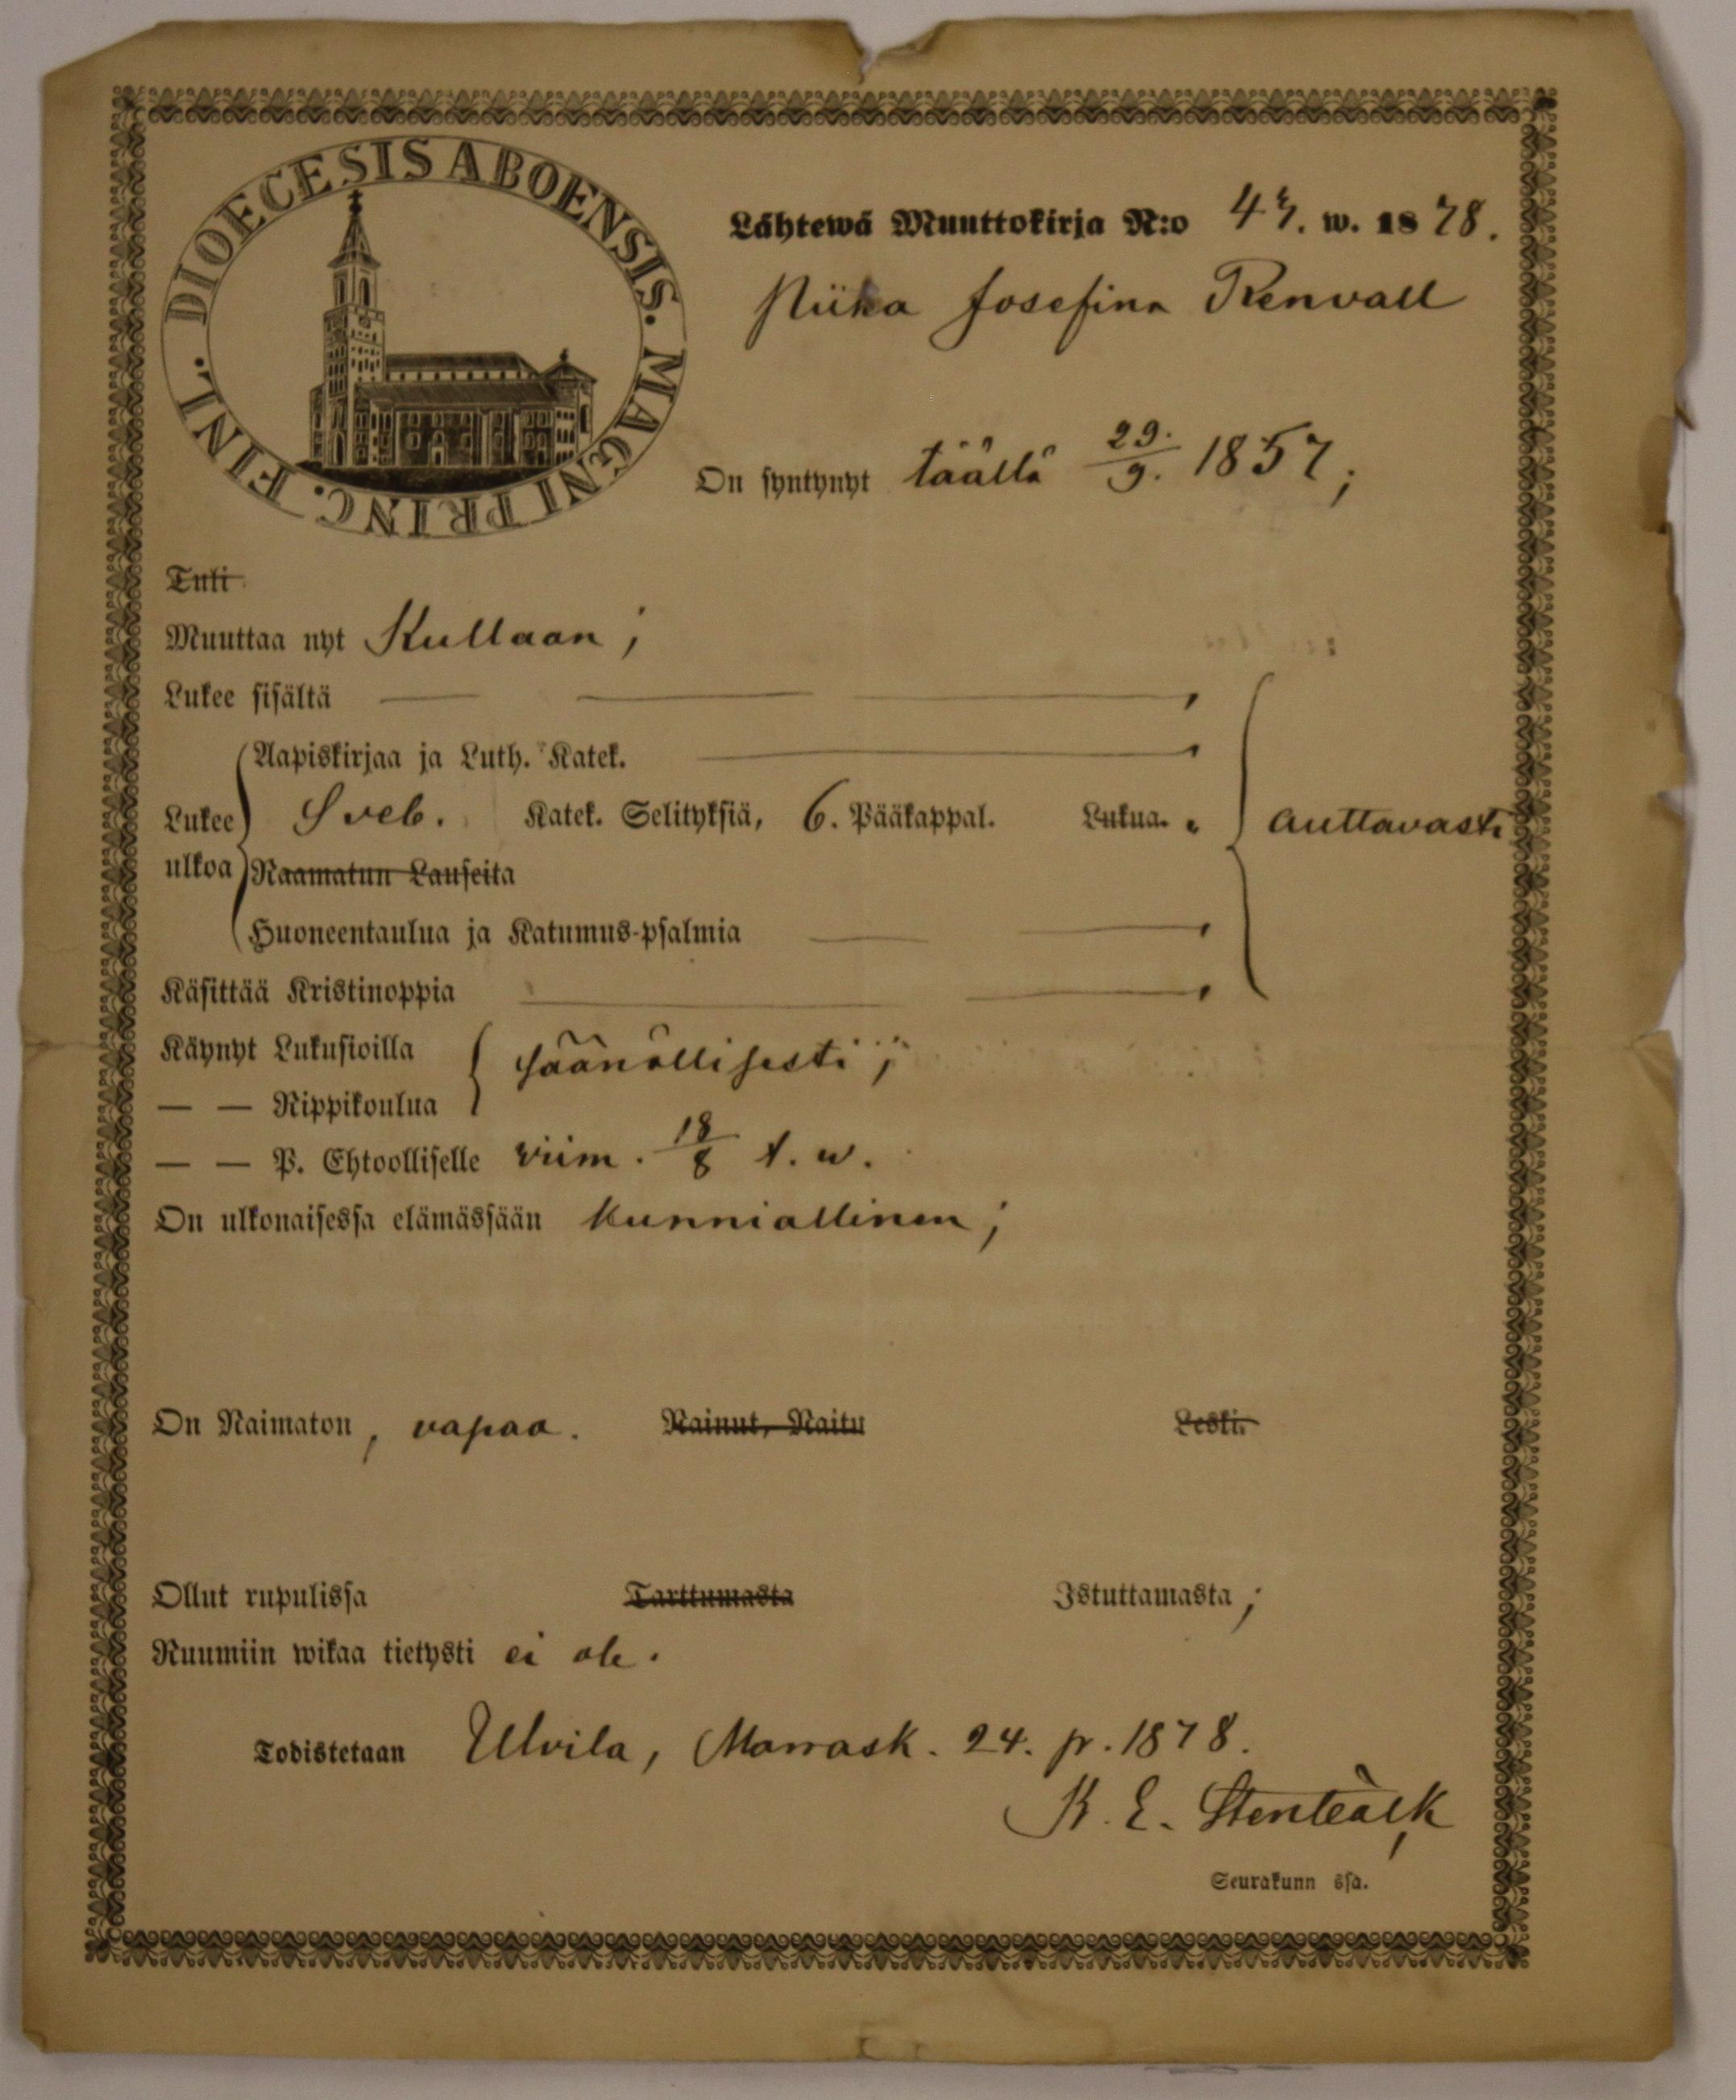 DIOECESIS ABOENSIS. MAGNI PRINC. FINL.
Lähtewä Muuttokirja N:o 47. w. 1878.
Josefina Renvall
On syntynyt täällä 29./9. 1857;
Tuli
Muuttaa nyt Kullaan;
Lukee sisältä
Aapiskirjaa ja Luth. Katek.
Lukee ulkoa Sveb. Katek. Selityksiä, 6. Pääkappal. Lukua. auttavasti
Raamatun Lauseita
Huoneentaulua ja Katumus-psalmia
Käsittää Kristinoppia
Käynyt Lukusioilla säänöllisesti;
— — Rippikoulua
— — P. Ehtoolliselle viim. 18/8 t. w.
On ulkonaisessa elämässään kunniallinen;
On Naimaton, vapaa. Nainut, Naitu Leski.
Ollut rupulissa Tarttumasta Istuttamasta;
Ruumiin wikaa tietysti ei ole.
Todistetaan Ulvila, Marrask. 24. p. 1878.
K. E.
Seurakunn ssa.